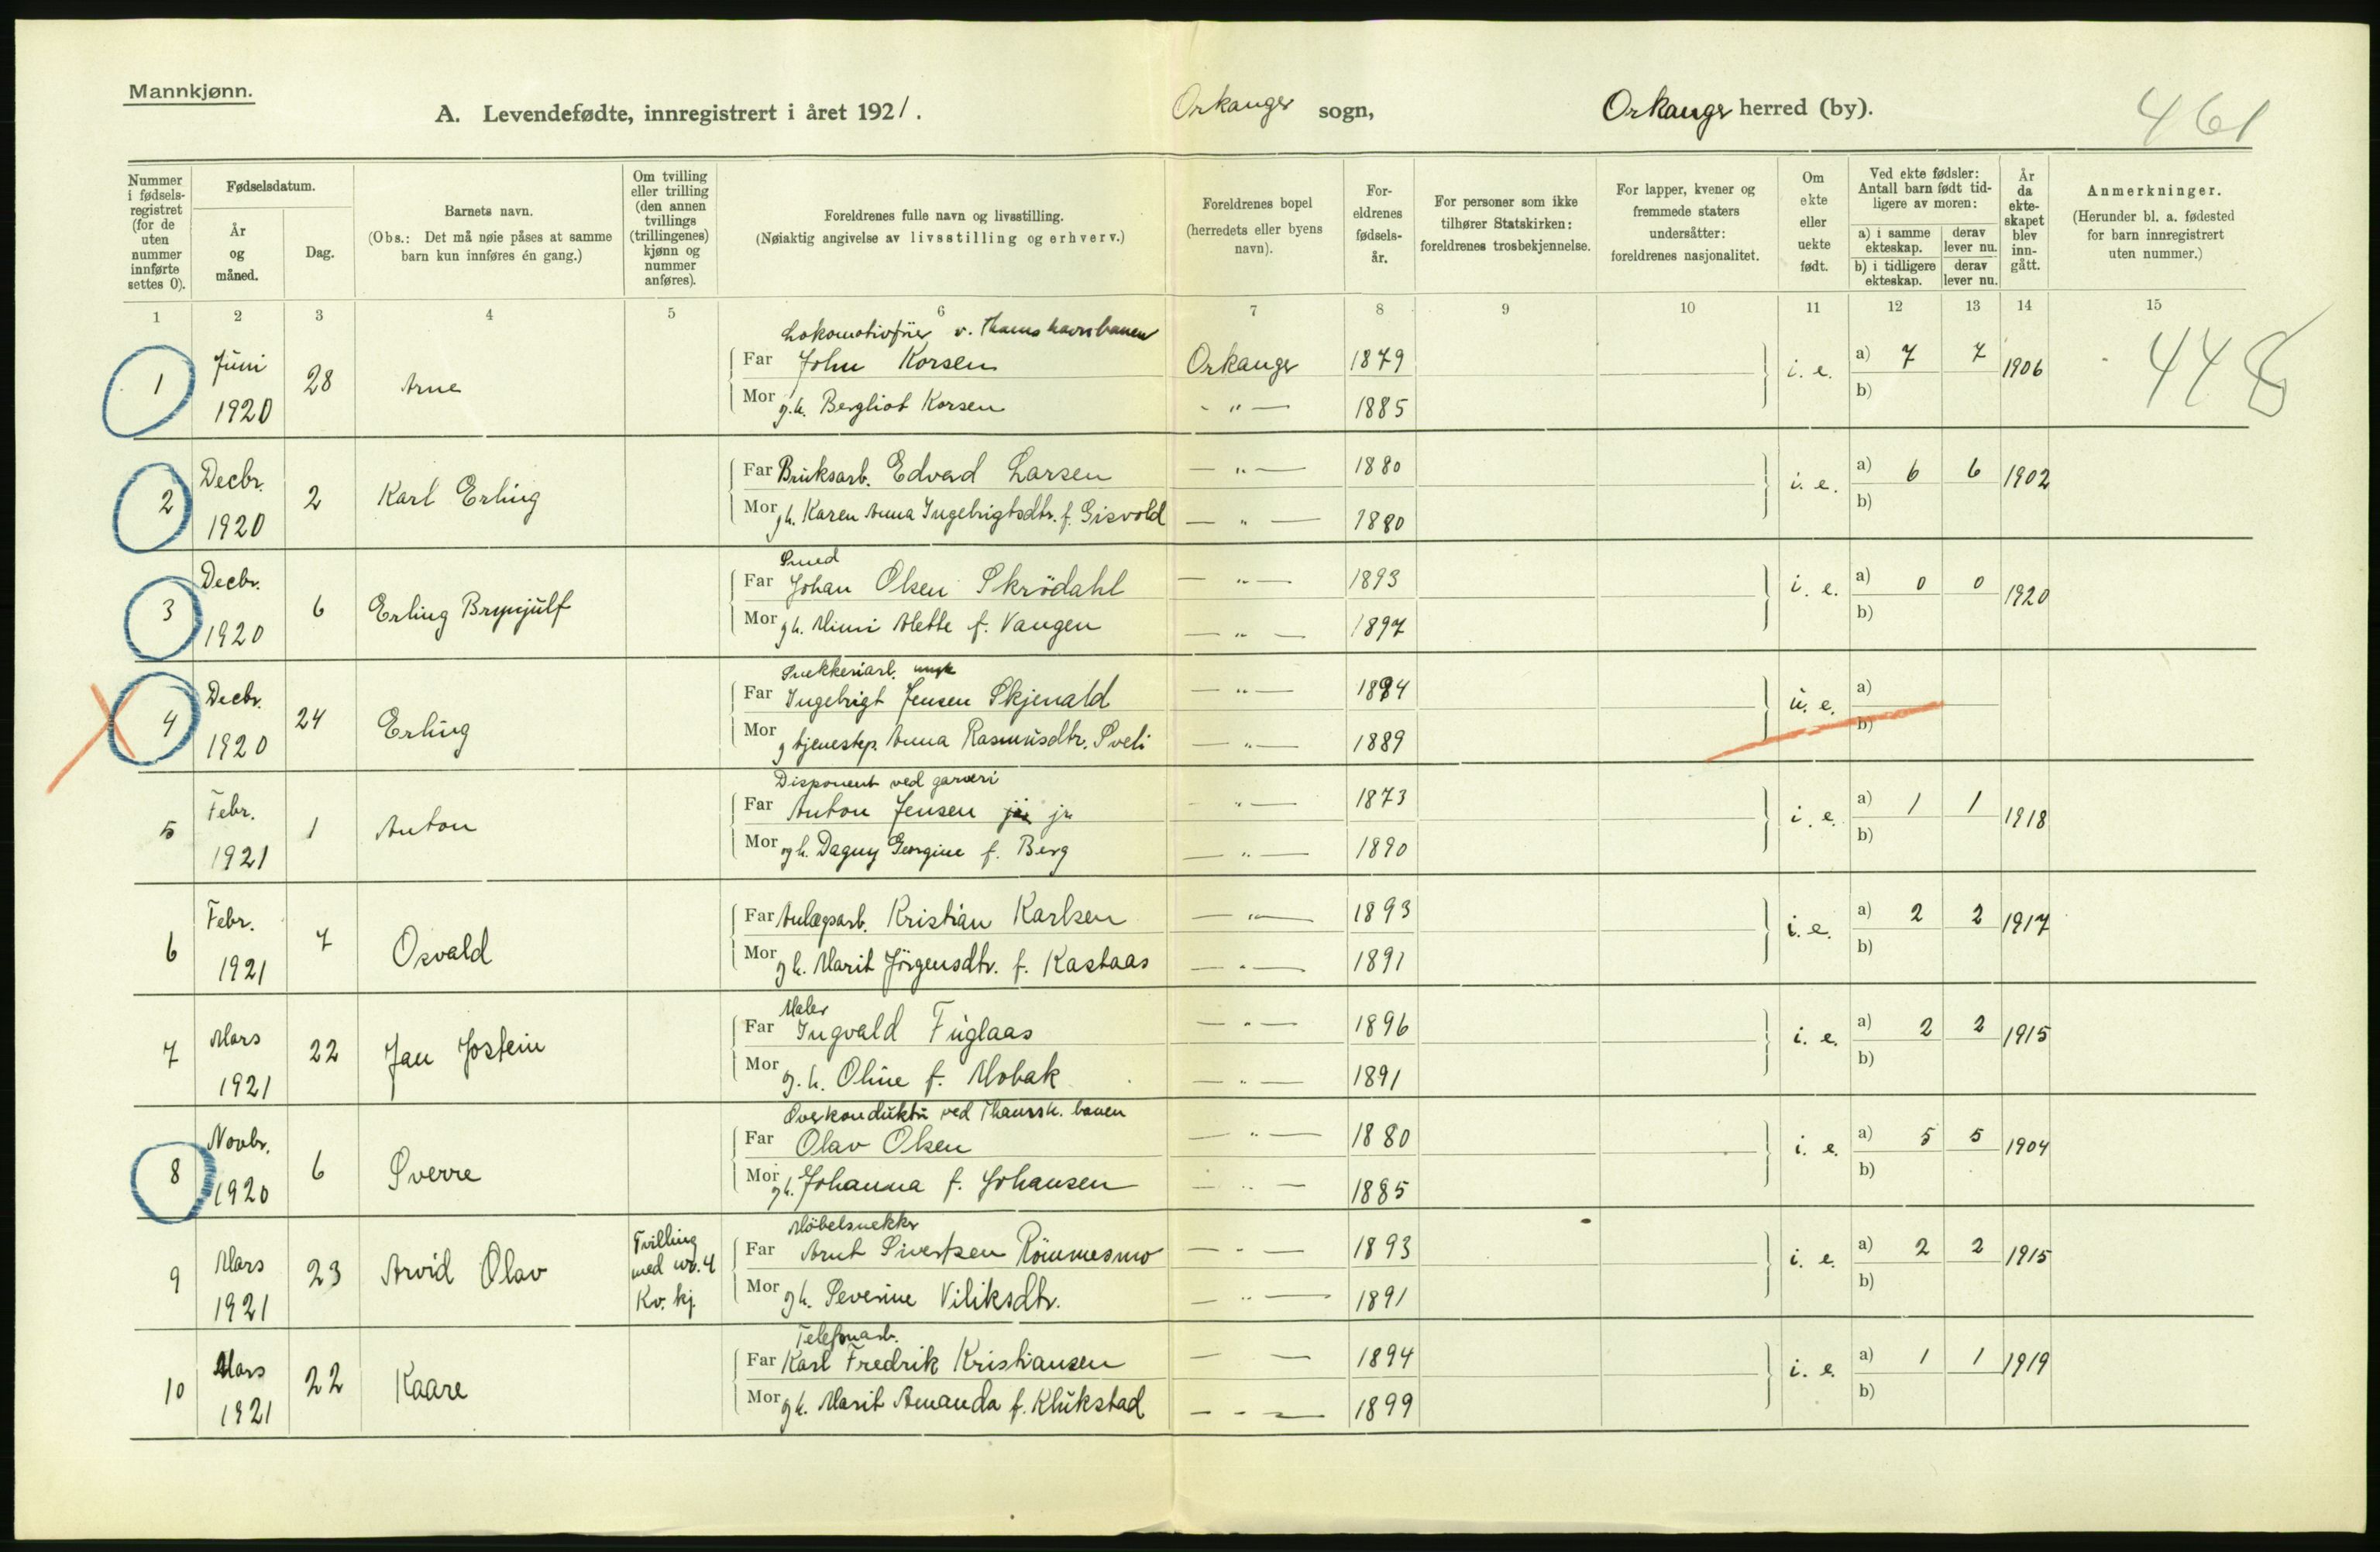 Mannkjønn.
A. Levendefødte, innregistrert i året 1921. Orkanger sogn, Orkanger herred (by). 461
Nummer i fødsels-registret (for de uten nummer innførte settes 0).
Fødselsdatum.
År og måned.
Dag.
Barnets navn.
(Obs.: Det må nøie påses at samme barn kun innføres én gang.)
Om tvilling eller trilling (den annen tvillings (trillingenes) kjønn og nummer anføres).
Foreldrenes fulle navn og livsstilling.
(Nøiaktig angivelse av livsstilling og erhverv.)
Foreldrenes bopel (herredets eller byens navn).
For-eldrenes fødsels-år.
For personer som ikke tilhører Statskirken: foreldrenes trosbekjennelse.
For lapper, kvener og fremmede staters undersåtter: foreldrenes nasjonalitet.
Om ekte eller uekte født.
Ved ekte fødsler: Antall barn født tid-ligere av moren:
a) i samme ekteskap.
derav lever nu.
b) i tidligere ekteskap.
derav lever nu.
År da ekte-skapet blev inn-gått.
Anmerkninger.
(Herunder bl. a. fødested for barn innregistrert uten nummer.)
1 2 3 4 5 6 7 8 9 10 11 12 13 14 15
Lokomotivfüer v. Thamshavnbanen
1 Juni 1920 28 Arne Far John Korsen Orkanger 1879 i. e. a) 7 7 1906 448
Mor g.h. Bergliot Korsen - " - 1885 b)
2 Decbr. 1920 2 Karl Erling Far Bruksarb. Edvard Larsen - " - 1880 i. e. a) 6 6 1902
Mor g h. Karen Anna Ingebrigtsdtr. f. Gisvold - " - 1880 b)
Smed
3 Decbr. 1920 6 Erling Brynjulf Far Johan Olsen Skrödahl - " - 1893 i. e. a) 0 0 1920
Mor g h. Mimi Alette f. Vangen - " - 1897 b)
Snekkeriarb.
4 Decbr. 1920 24 Erling Far Ingebrigt Jensen Skjenald - " - 1894 u. e. a)
Mor g tjenestep. Anna Rasmusdtr. Sveli - " - 1889 b)
Disponent ved garveri
5 Febr. 1921 1 Anton Far Anton Jensen jr - " - 1873 i. e. a) 1 1 1918
Mor g h. Dagny Georgine f. Berg - " - 1890 b)
6 Febr. 1921 7 Osvald Far Anlægsarb. Kristian Karlsen - " - 1893 i. e. a) 2 2 1917
Mor g h. Marit Jörgensdtr. f. Kastaas - " - 1891 b)
Maler
7 Mars 1921 22 Jan Jostein Far Ingvald Fuglaas - " - 1896 i. e. a) 2 2 1915
Mor g. h. Oline f. Mobak - " - 1891 b)
Overkonduktü ved Thamsh. banen
8 Novbr. 1920 6 Sverre Far Olav Olsen - " - 1880 i. e. a) 5 5 1904
Mor g h. Johanna f. Johansen - " - 1885 b)
Möbelsnekker
9 Mars 1921 23 Arvid Olav Tvilling med nr. 4 Kv. kj. Far Arnt Sivertsen Römmesmo - " - 1893 i. e. a) 2 2 1915
Mor g h. Severine Viliksdtr. - " - 1891 b)
Telefonarb.
10 Mars 1921 22 Kaare Far Karl Fredrik Kristiansen - - 1894 i. e. a) 1 1 1919
Mor g h. Marit Amanda f. Klükstad - - - 1899 b)